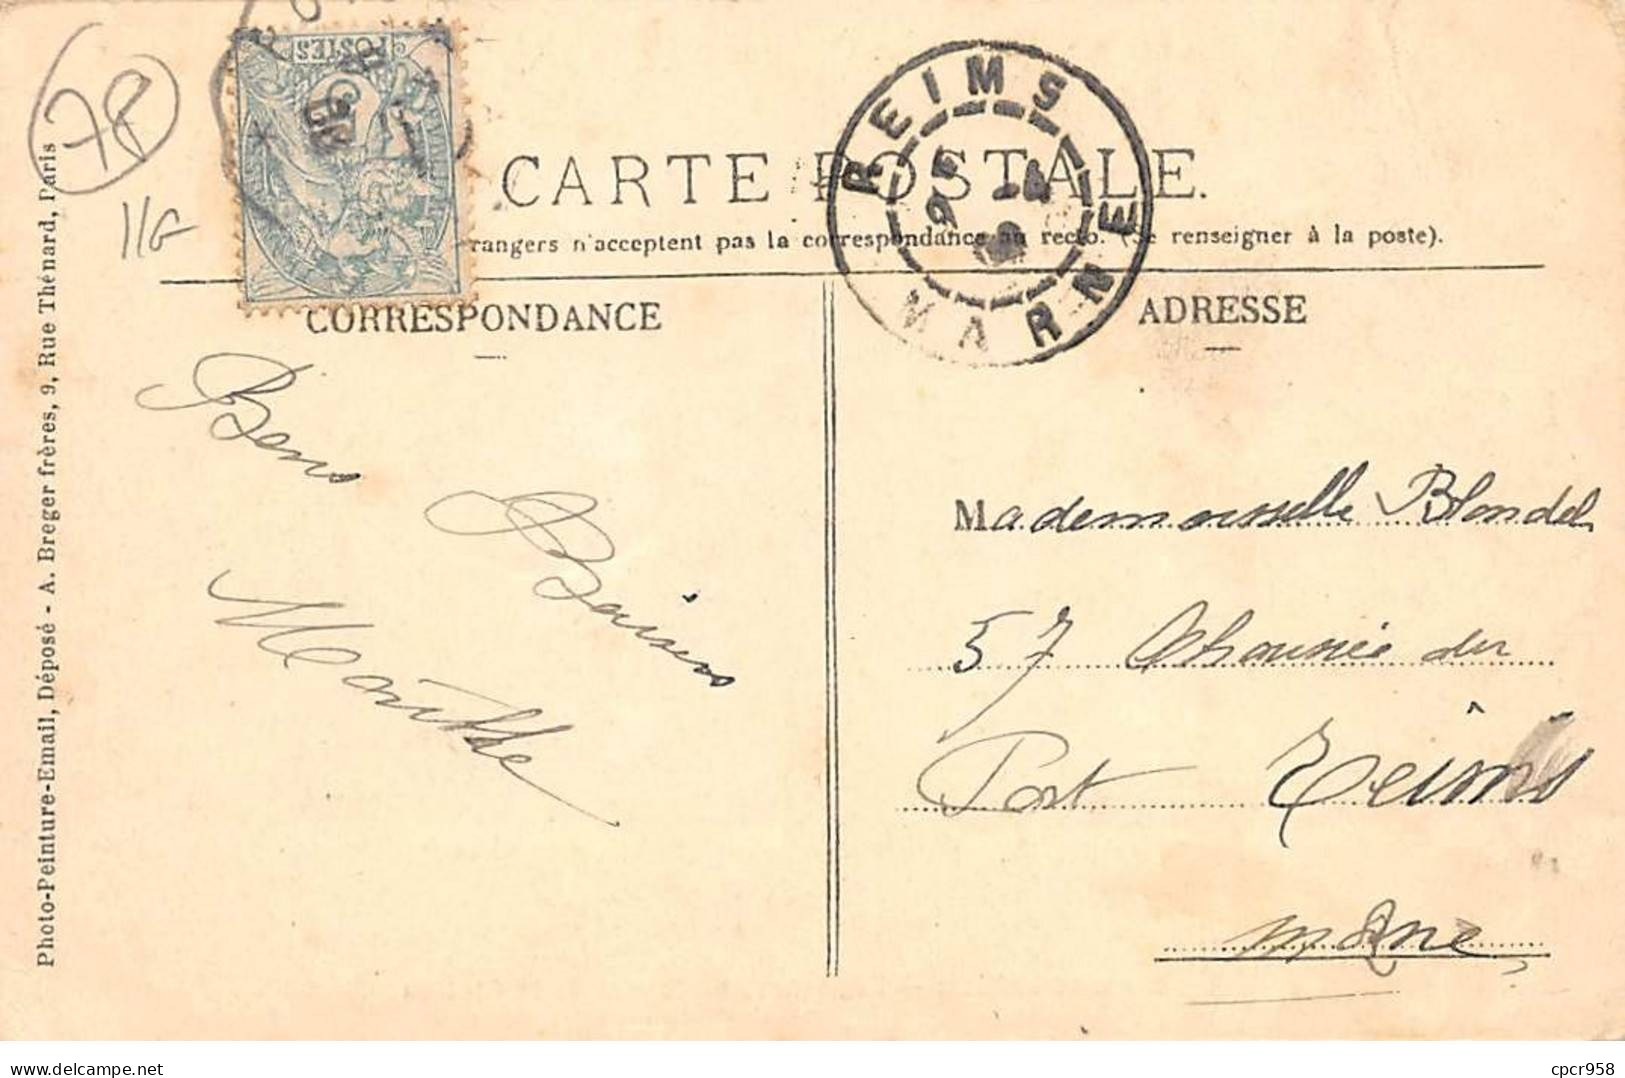 78
11G
POSTES
REIMS
MARNE
CARTE POSTALE.
rangers n'acceptent pas la correspondance au recto. (Se renseigner à la poste).
CORRESPONDANCE
Bons
Baisers
ADRESSE
Mademoiselle Blondel
57 Chaussée du
Port Reims
Marne
Photo-Peinture-Email, Déposé - A. Breger frères, 9, Rue Thénard, Paris
Delcampe.net
cpcr958